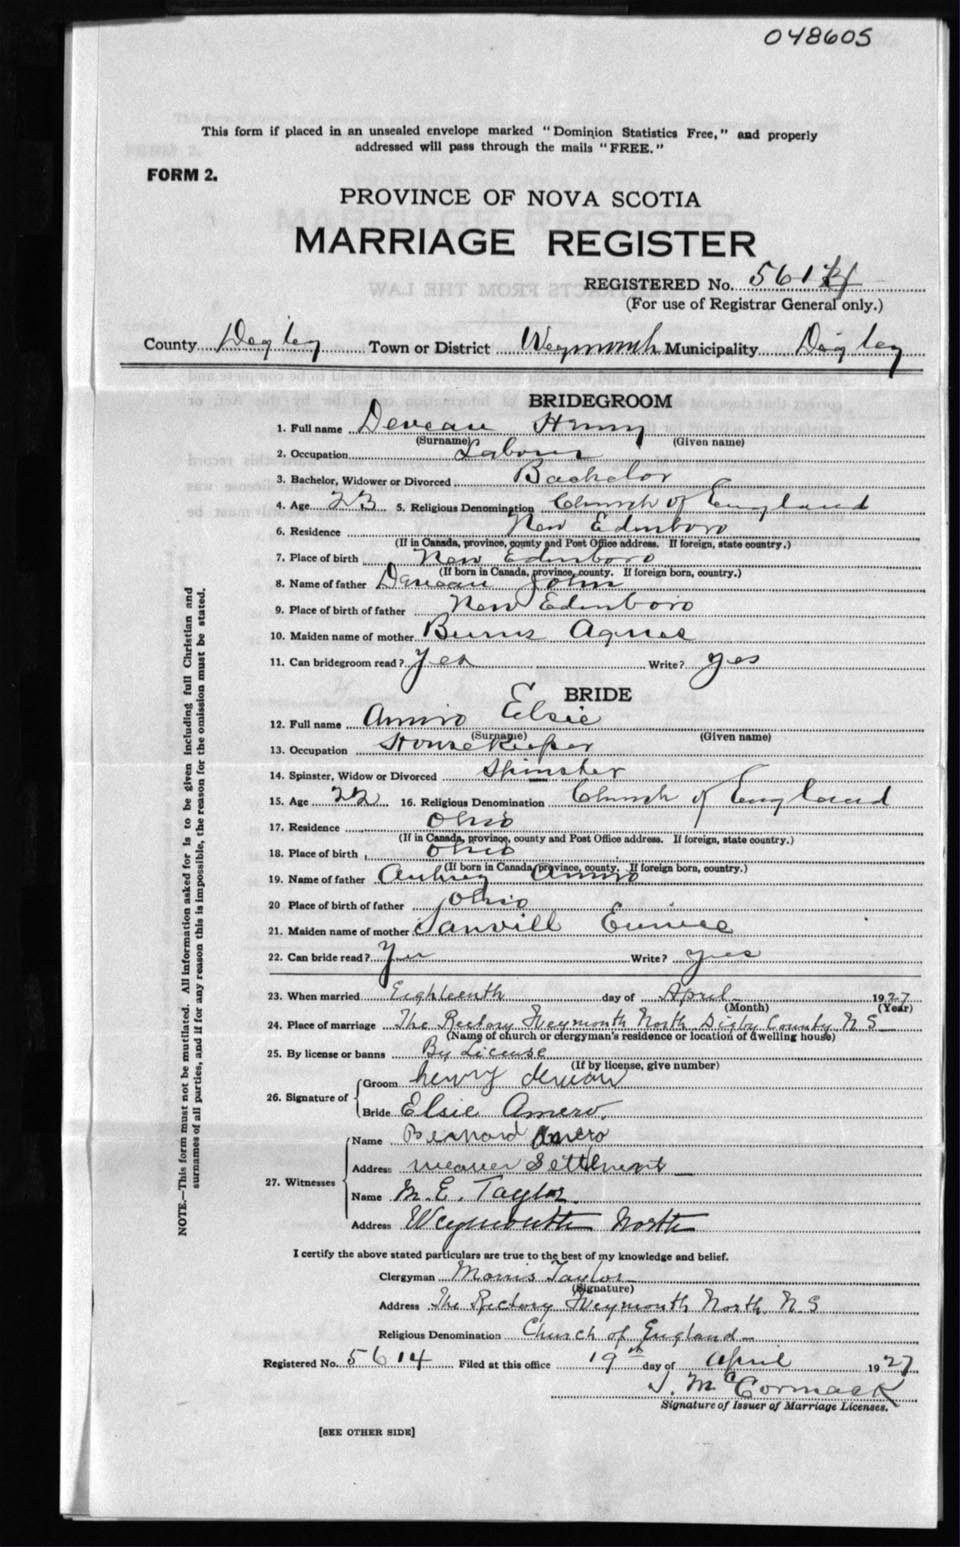 048605
This form if placed in an unsealed envelope marked "Dominion Statistics Free," and properly
addressed will pass through the mails "FREE."
FORM 2.
PROVINCE OF NOVA SCOTIA
MARRIAGE REGISTER
REGISTERED No. 5614
(For use of Registrar General only.)
County Digby Town or District Weymouth Municipality Digby
BRIDEGROOM
1. Full name Deveau Henry
(Surname) (Given name)
2. Occupation Labour
3. Bachelor, Widower or Divorced Bachelor
4. Age 23 5. Religious Denomination Church of England
6. Residence New Edinboro
(If in Canada, province, county and Post Office address. If foreign, state country.)
7. Place of birth New Edinboro
(If born in Canada, province, county. If foreign born, country.)
8. Name of father Deveau John
9. Place of birth of father New Edinboro
10. Maiden name of mother Burns Agnes
11. Can bridegroom read? Yes Write? yes
BRIDE
12. Full name Amiro Elsie
(Surname) (Given name)
13. Occupation Housekeeper
14. Spinster, Widow or Divorced Spinster
15. Age 22 16. Religious Denomination Church of England
17. Residence Ohio
(If in Canada, province, county and Post Office address. If foreign, state country.)
18. Place of birth Ohio
(If born in Canada, province, county. If foreign born, country.)
19. Name of father Aubrey Amiro
20 Place of birth of father Ohio
21. Maiden name of mother Sanvill Eunice
22. Can bride read? Yes Write? yes
23. When married Eighteenth day of April 1927
(Month) (Year)
24. Place of marriage The Rectory Weymouth North Digby County N S
(Name of church or clergyman's residence or location of dwelling house)
25. By license or banns By License
(If by license, give number)
26. Signature of Groom henry deveau
Bride Elsie Amero.
27. Witnesses
Name Bernard Amero
Address weaver Settlment
Name M. E. Taylor
Address Weymouth North
I certify the above stated particulars are true to the best of my knowledge and belief.
Clergyman Morris Taylor
(Signature)
Address The Rectory Weymouth North N S
Religious Denomination Church of England
Registered No. 5614 Filed at this office 19th day of April 1927
J. McCormack
Signature of Issuer of Marriage Licenses.
[SEE OTHER SIDE]
NOTE.—This form must not be mutilated. All information asked for is to be given including full Christian and
surnames of all parties, and if for any reason this is impossible, the reason for the omission must be stated.